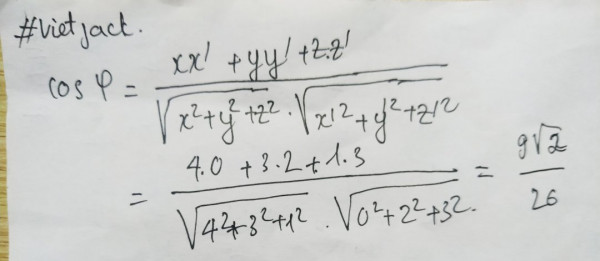 #vietjack.
cos φ = (xx' + yy' + z.z') / (√(x²+y²+z²) . √(x'²+y'²+z'²))
= (4.0 + 3.2 + 1.3) / (√(4²+3²+1²) . √(0²+2²+3².)) = 9√2 / 26